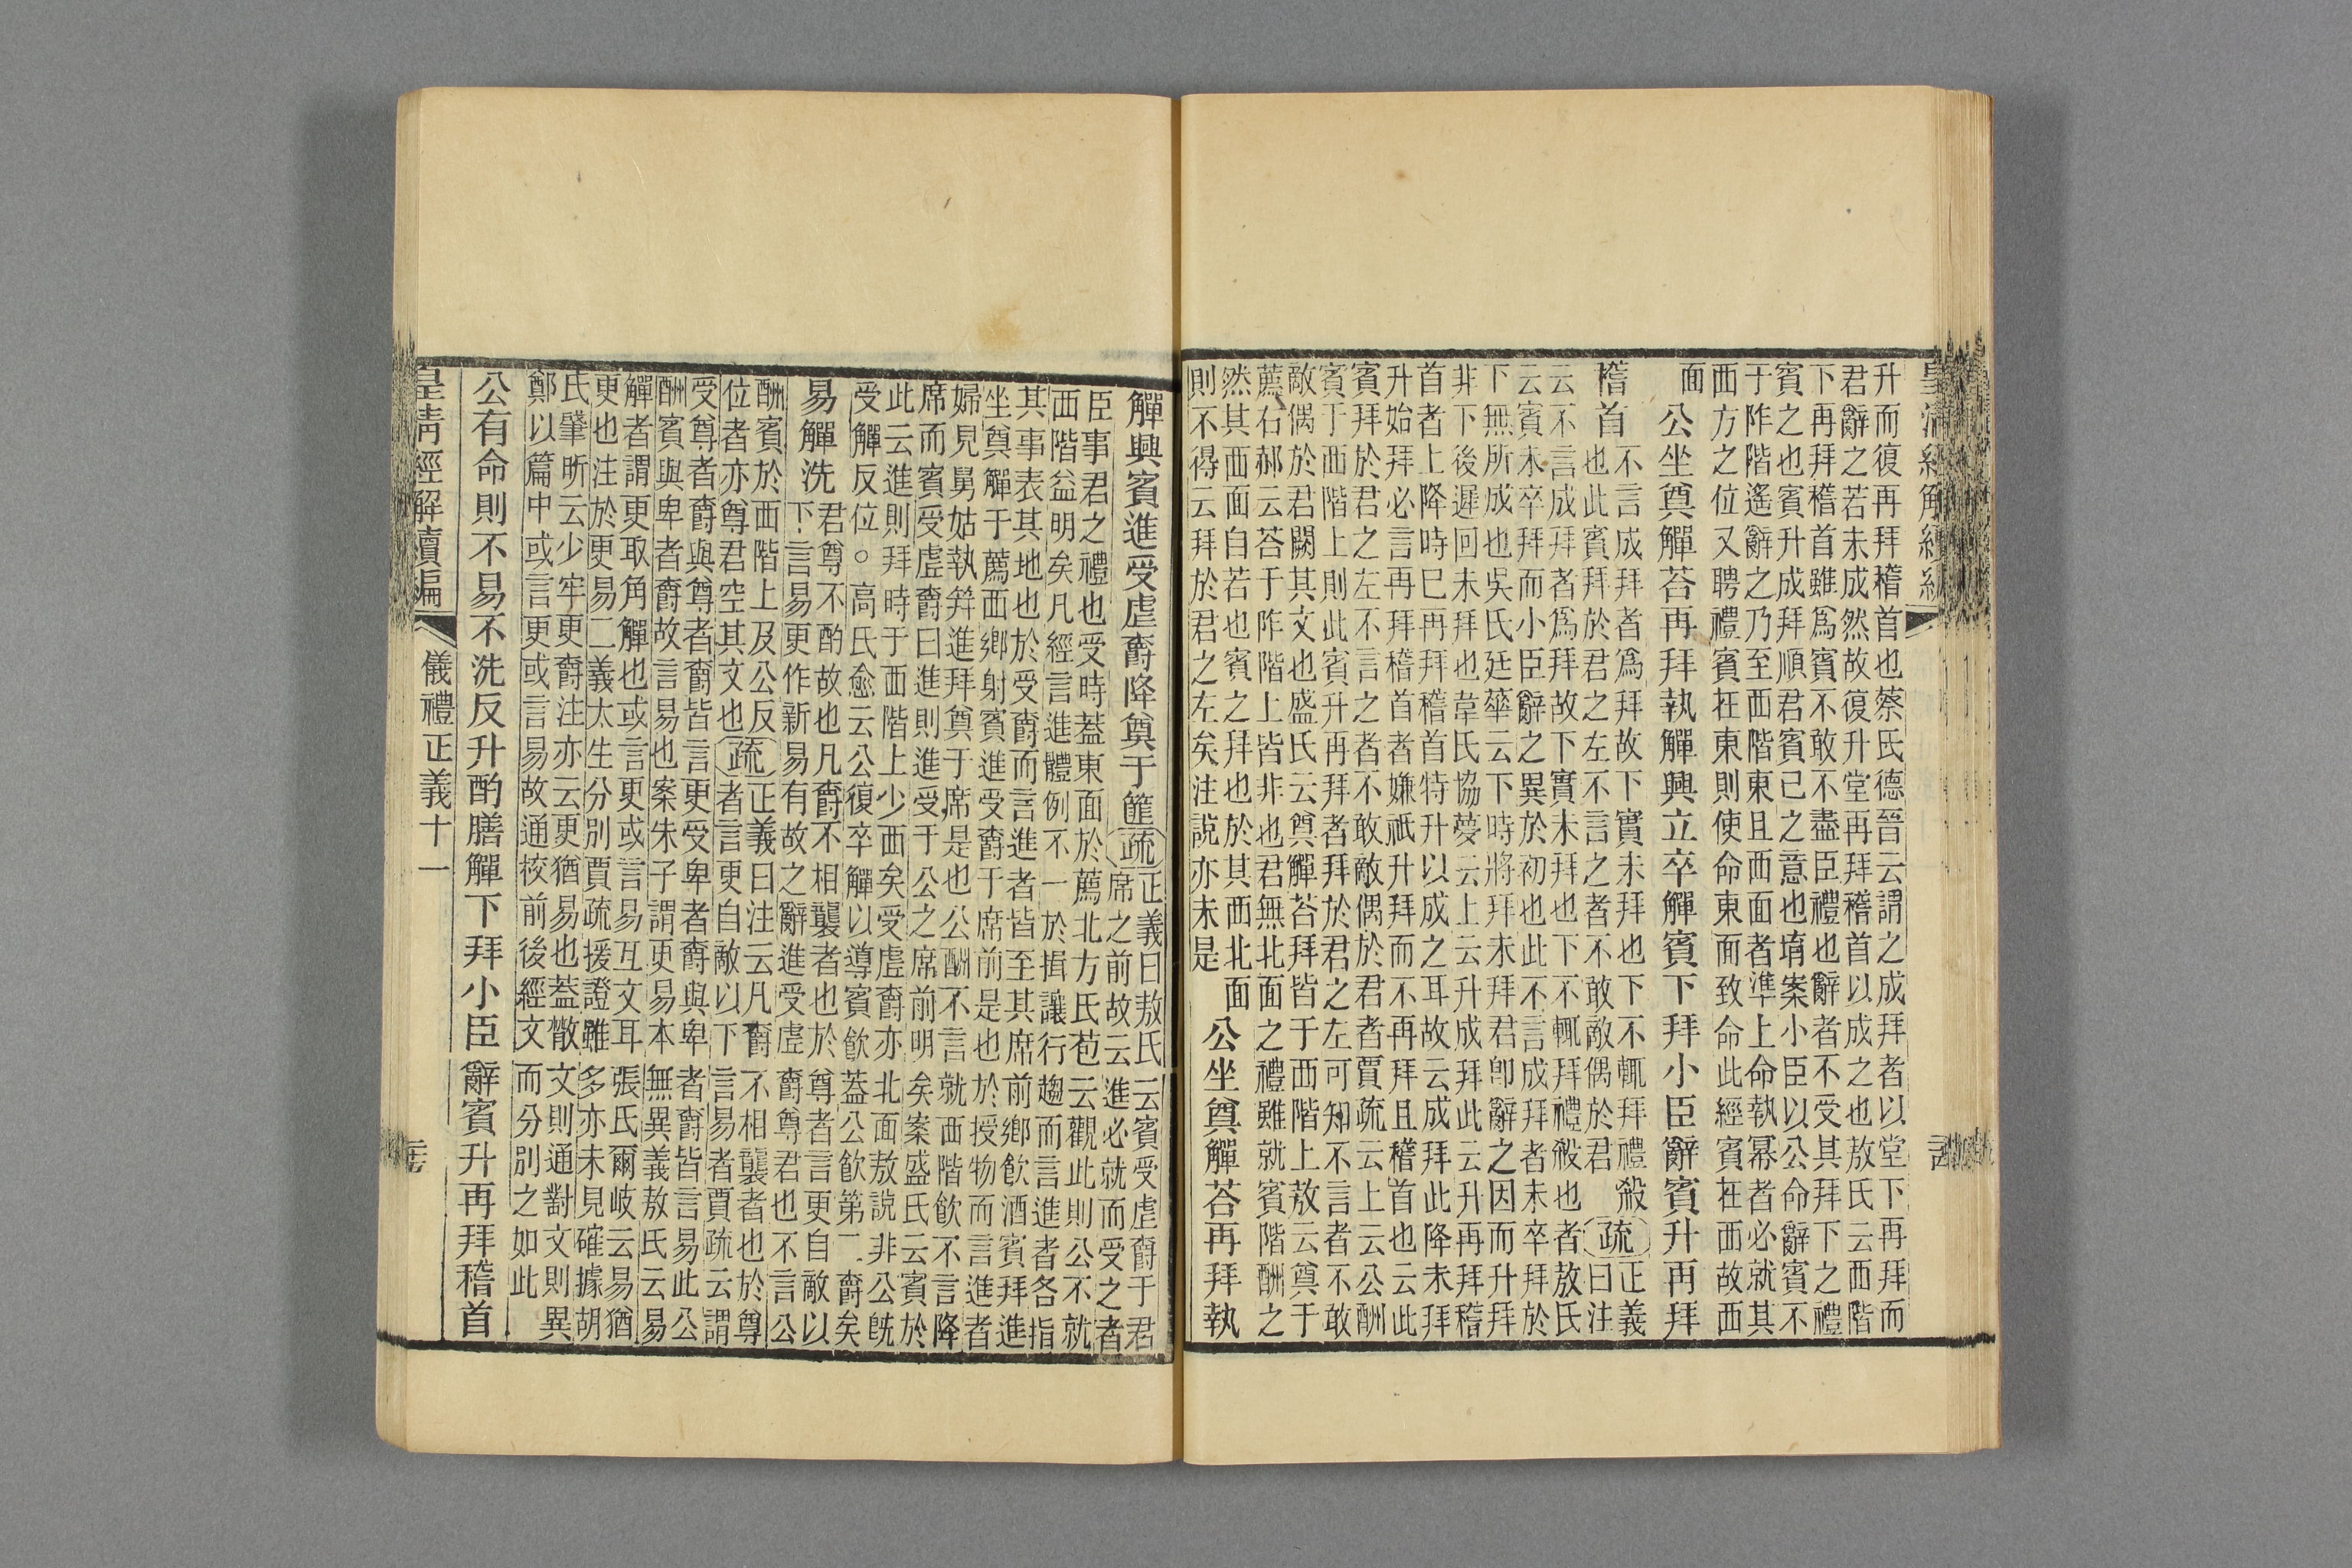 升而復再拜稽首也蔡氏德晉云謂之成拜者以堂下再拜而
君辭之若未成然故復升堂再拜稽首以成之也敖氏云西階
下再拜稽首雖爲賓不敢不盡臣禮也辭者不受其拜下之禮
賓之也賓升成拜順君賓已之意也堉案小臣以公命辭賓不
于阼階遙辭之乃至西階東且西面者準上命執冪者必就其
西方之位又聘禮賓在東則使命東面致命此經賓在西故西
面
公坐奠觶荅再拜執觶興立卒觶賓下拜小臣辭賓升再拜
稽首
不言成拜者爲拜故下實未拜也下不輒拜禮殺
也此賓拜於君之左不言之者不敢敵偶於君
疏
正義曰注
云不言成拜者爲拜故下實未拜也下不輒拜禮殺也者敖氏
云賓未卒拜而小臣辭之異於初也此不言成拜者未卒拜於
下無所成也吳氏廷華云下時將拜未拜君卽辭之因而升拜
非下後遲回未拜也韋氏協夢云上云升成拜此云升再拜稽
首者上降時已再拜稽首特升以成之耳故云成拜此降未拜
升始拜必言再拜稽首者嫌祇升拜而不再拜且稽首也云此
賓拜於君之左不言之者不敢敵偶於君者賈疏云上云公酬
賓于西階上則此賓升再拜者拜於君之左可知不言者不敢
敵偶於君闕其文也盛氏云奠觶荅拜皆于西階上敖云奠于
薦右郝云荅于阼階上皆非也君無北面之禮雖就賓階酬之
然其西面自若也賓之拜也於其西北面
則不得云拜於君之左矣注說亦未是
公坐奠觶荅再拜執
觶興賓進受虛爵降奠于篚
疏
正義曰敖氏云賓受虛爵于君
席之前故云進必就而受之者
臣事君之禮也受時蓋東面於薦北方氏苞云觀此則公不就
西階益明矣凡經言進體例不一於揖讓行趨而言進者各指
其事表其地也於受爵而言進者皆至其席前鄉飲酒賓拜進
坐奠觶于薦西鄉射賓進受爵于席前是也於授物而言進者
婦見舅姑執笲進拜奠于席是也公酬不言就西階飲不言降
席而賓受虛爵曰進則進受于公之席前明矣案盛氏云賓於
此云進則拜時于西階上少西矣受虛爵亦北面敖說非公旣
受觶反位。高氏愈云公復卒觶以導賓飲蓋公飲第二爵矣
易觶洗
君尊不酌故也凡爵不相襲者也於尊者言更自敵以
下言易更作新易有故之辭進受虛爵尊君也不言公
酬賓於西階上及公反
位者亦尊君空其文也
疏
正義曰注云凡爵不相襲者也於尊
者言更自敵以下言易者賈疏云謂
受尊者爵與尊者爵皆言更受卑者爵與卑者爵皆言易此公
酬賓與卑者爵故言易也案朱子謂更易本無異義敖氏云易
觶者謂更取角觶也或言更或言易互文耳張氏爾岐云易猶
更也注於更易二義太生分別賈疏援證雖多亦未見確據胡
氏肇昕云少牢更爵注亦云更猶易也蓋散文則通對文則異
鄭以篇中或言更或言易故通挍前後經文而分別之如此
公有命則不易不洗反升酌膳觶下拜小臣辭賓升再拜稽首
皇淸經解續編
儀禮正義十一